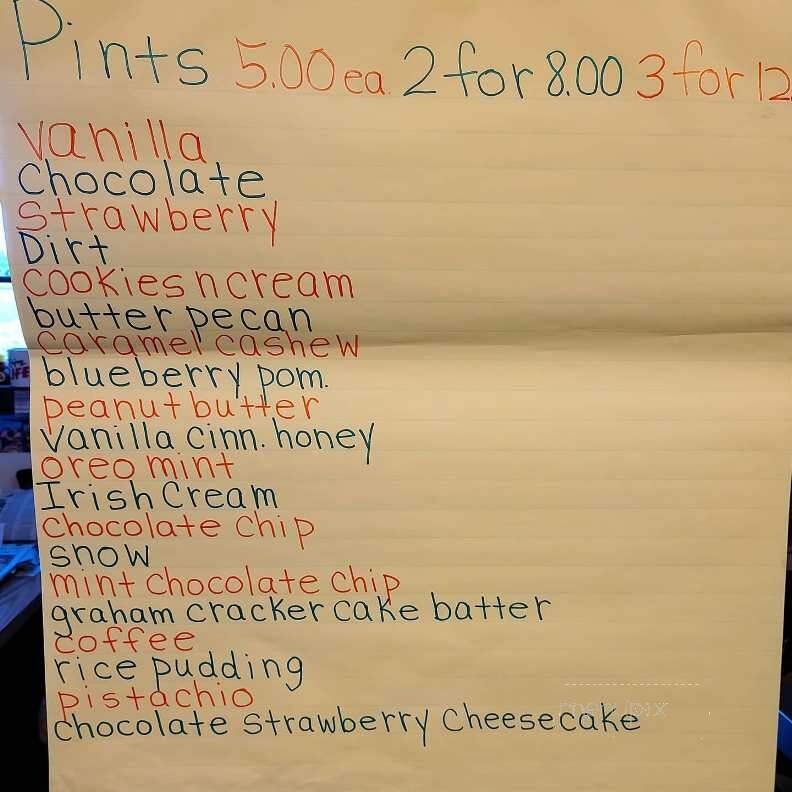 Pints 5.00 ea. 2 for 8.00 3 for 12
vanilla
Chocolate
strawberry
Dirt
cookies n cream
butter pecan
caramel cashew
blueberry pom.
peanut butter
Vanilla cinn. honey
oreo mint
Irish Cream
chocolate chip
snow
mint chocolate chip
graham cracker cake batter
coffee
rice pudding
pistachio
chocolate strawberry cheesecake